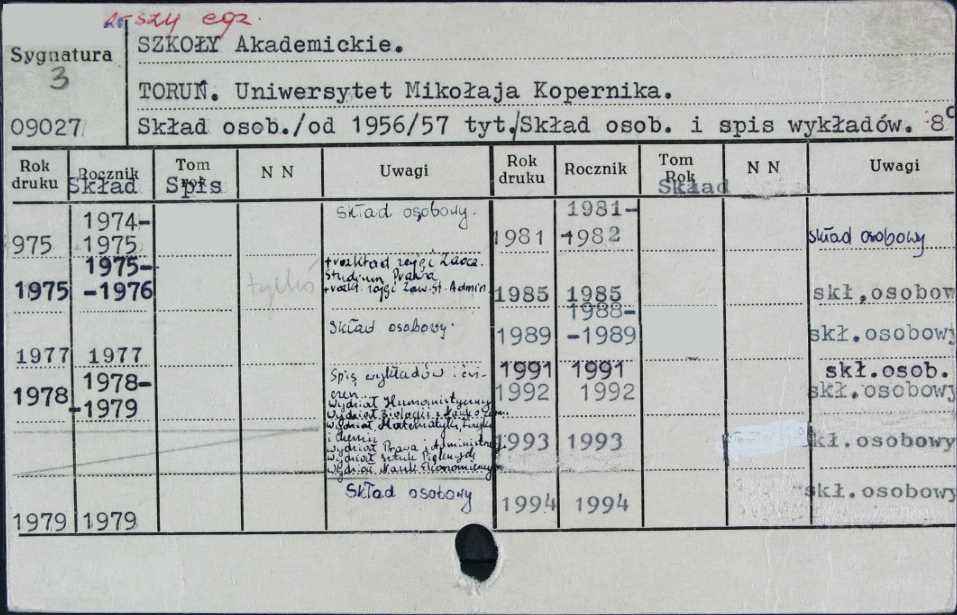 szy egz.
SZKOŁY Akademickie.
Sygnatura
3
TORUŃ. Uniwersytet Mikołaja Kopernika.
09027
Skład osob./od 1956/57 tyt./Skład osob. i spis wykładów. 8°
Rok druku Rocznik Tom Rok N N Uwagi Rok druku Rocznik Tom Rok N N Uwagi
Skład Spis Skład
975 1974-1975 Skład osobowy.
1975 1975-1976 tylko
+rozkład zajęć Zaocz.
Studium Prawa
+rozkł. zajęć Zaw. St. Admin
1977 1977 Skład osobowy.
1978 1978-1979 Spis wykładów i ćwi-
czeń
Wydział Humanistyczny
Wydział Biologii i Nauk o Ziemi
Wydział Matematyki, Fizyki
i Chemii
Wydział Prawa i Administracji
Wydział Sztuk Pięknych
Wydział Nauk Ekonomicznych
1979 1979 Skład osobowy
1981 1981-1982 skład osobowy
1985 1985 skł,osobow
1989 1988-1989 skł.osobowy
1991 1991 skł.osob.
1992 1992 skł.osobowy
1993 1993 kł.osobowy
1994 1994 skł.osobowy